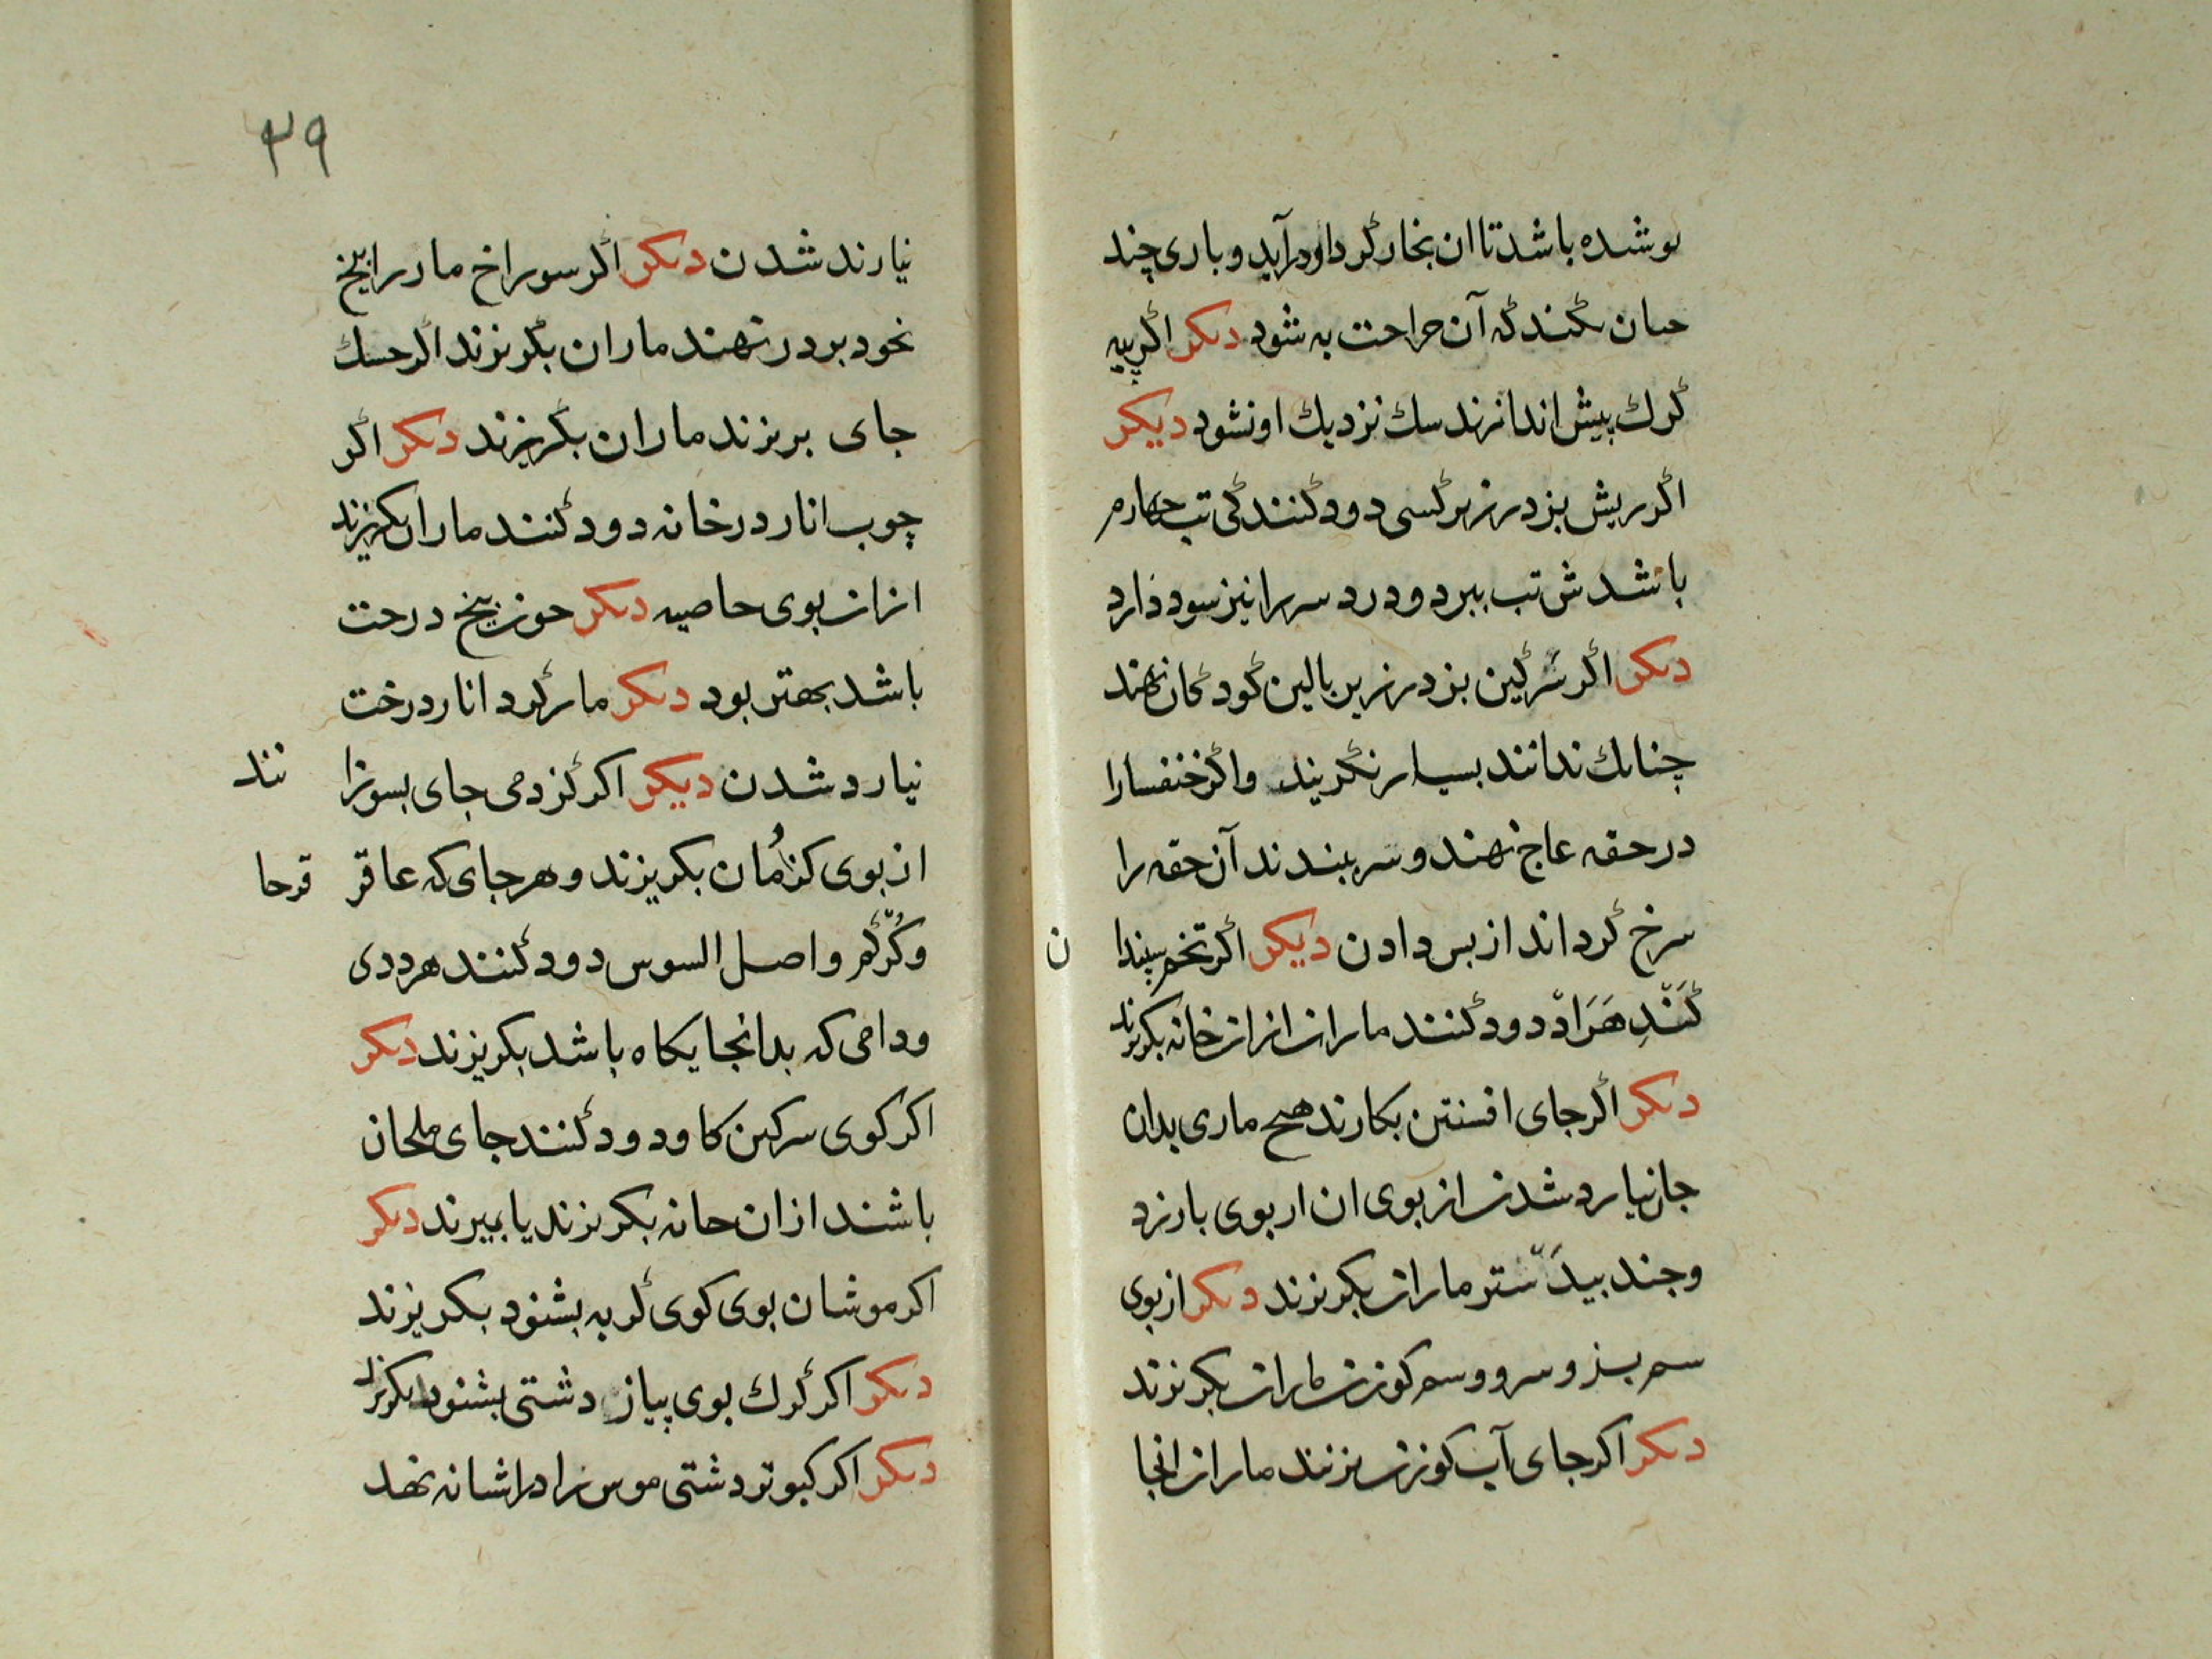 بوشده باشد تا ان بخار گرد او درآید و باری چند
حنان بکند که آن جراحت به شود دیکر اکر پیه
گرك پیش اندازند سك نزدیك او نشود دیکر
اکر ریش بز در زیر کسی دود کنند کی تب چهارم
باشدش تب ببرد و درد سر را نیز سود دارد
دیکر اکر سرکین بز در زیر بالین کودکان نهند
چنانك ندانند بسیار نکریند و اکر خنفسا را
در حقه عاج نهند و سر ببندند آن حقه را
سرخ کرداند از بس دادن دیکر اکر تخم سپندا ن
گند هزاد دود کنند ماران از ان خانه بکریزند
دیکر اکر جای افسنتین بکارند هیح ماری بدان
جا نیارد شدن از بوی ان از بوی بارزد
و جند بیدستر ماران بکریزند دیکر از بوی
سم بز و سرو و سم کوزن ماران بکریزند
دیکر اکر جای آب کوزن بزنند ماران انجا
۳۹
نیارند شدن دیکر اکر سوراخ مار را بیخ
نخود بر در نهند ماران بکریزند اکر حسك
جای بریزند ماران بکریزند دیکر اکر
چوب انار در خانه دود کنند ماران بکریزند
از ان بوی خاصیه دیکر حون بیخ درخت
باشد بهتر بود دیکر مار کرد انار درخت
نیارد شدن دیکر اکر کزدمی جای بسوزا نند
از بوی کزدمان بکریزند و هر جای که عاقر قرحا
و کرکم و اصل السوس دود کنند هر ددی
و دامی که بدانجایکاه باشد بکریزند دیکر
اکر کوی سرکین کاو دود کنند جای ملخان
باشند از ان خانه بکریزند یا بمیرند دیکر
اکر موشان بوی کوی کربه بشنود بکریزند
دیکر اکر کرك بوی پیاز دشتی بشنود بکریزد
دیکر اکر کبوتر دشتی مورد را در اشانه نهد